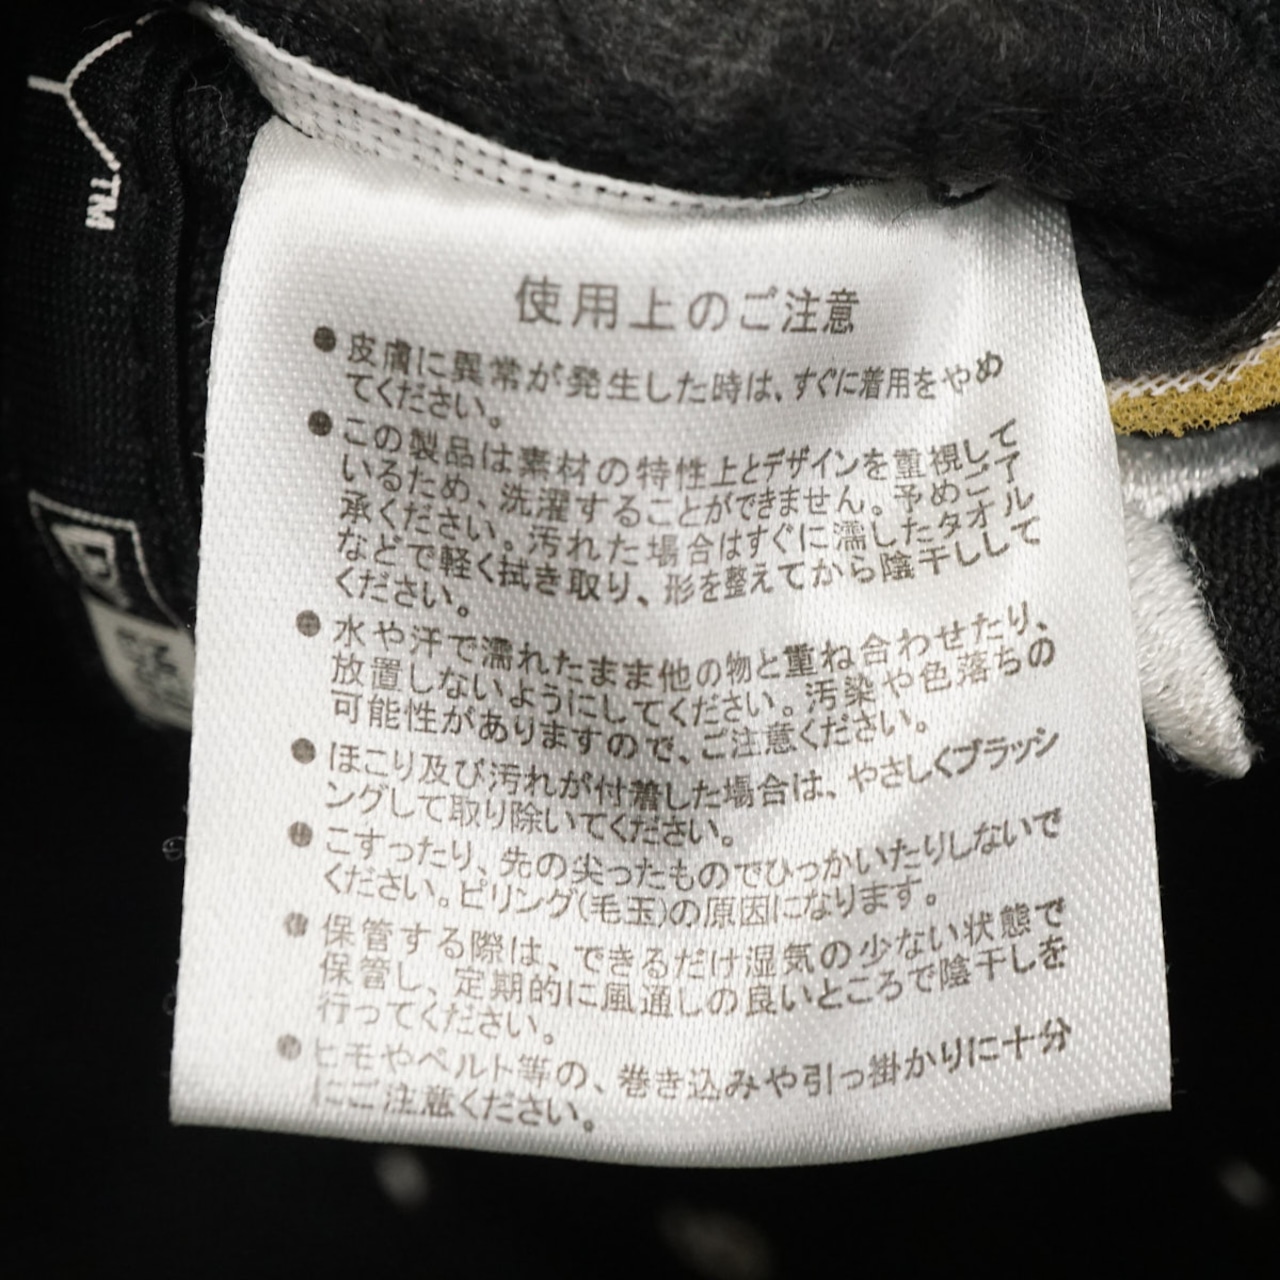 TM
使用上のご注意
●皮膚に異常が発生した時は、すぐに着用をやめ
てください。
●この製品は素材の特性上とデザインを重視して
いるため、洗濯することができません。予めご了
承ください。汚れた場合はすぐに濡したタオル
などで軽く拭き取り、形を整えてから陰干しして
ください。
●水や汗で濡れたまま他の物と重ね合わせたり、
放置しないようにしてください。汚染や色落ちの
可能性がありますので、ご注意ください。
●ほこり及び汚れが付着した場合は、やさしくブラッシ
ングして取り除いてください。
●こすったり、先の尖ったものでひっかいたりしないで
ください。ピリング(毛玉)の原因になります。
●保管する際は、できるだけ湿気の少ない状態で
保管し、定期的に風通しの良いところで陰干しを
行ってください。
●ヒモやベルト等の、巻き込みや引っ掛かりに十分
にご注意ください。